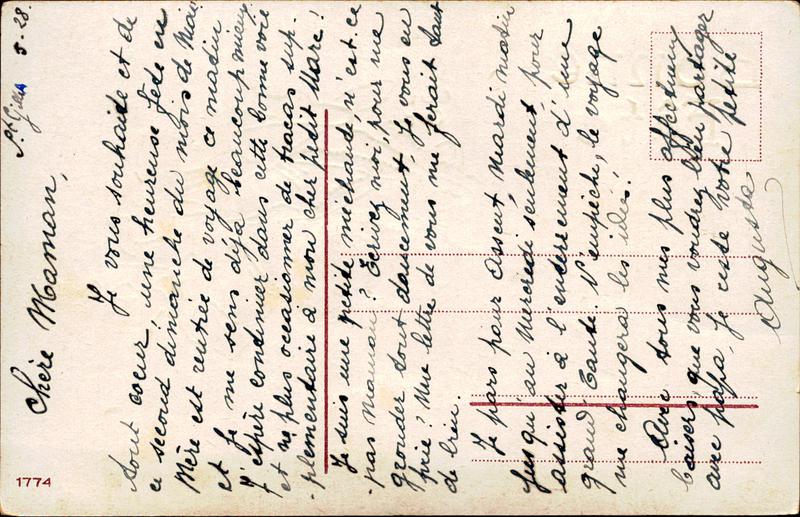 St Gilles 5-28.
Chère Maman,
Je vous souhaite et de
tout coeur, une heureuse fête en
ce second dimanche du mois de Mai
Mère est rentrée de voyage ce matin
et je me sens déjà beaucoup mieux
J'espère continuer dans cette bonne voie
et ne plus occasionner de tracas sup-
-plémentaire à mon cher petit Marc!
Je suis une petite méchante, n'est-ce
-pas Maman? Ecrivez moi, pour me
gronder tout doucement, je vous en
prie? Une lettre de vous me ferait tant
de bien.
Je pars pour Assent Mardi matin
jusqu'au Mercredi seulement, pour
assister à l'enterrement d'une
grand'tante. N'empêche, le voyage
me changera les idées!
Avec tous mes plus affectueux
baisers, que vous voudrez bien partager
avec papa, je reste votre petite
Augusta
1774